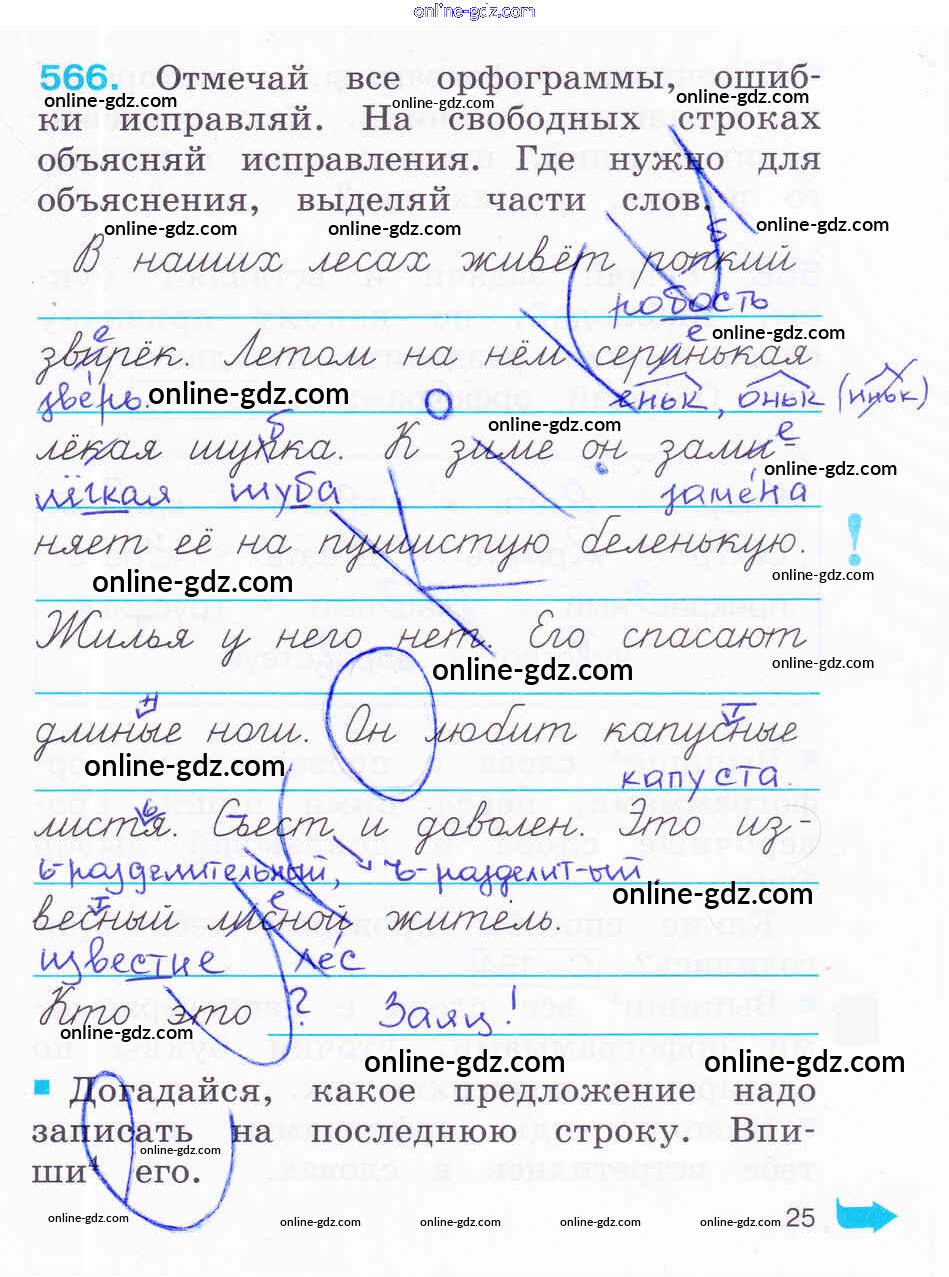 online-gdz.com
566. Отмечай все орфограммы, ошиб-
online-gdz.com online-gdz.com online-gdz.com
ки исправляй. На свободных строках
объясняй исправления. Где нужно для
объяснения, выделяй части слов.
online-gdz.com online-gdz.com online-gdz.com
б
В наших лесах живёт попкий
робость
е е online-gdz.com
звирёк. Летом на нём серинькая
зверь. online-gdz.com еньк, оньк (иньк)
б online-gdz.com е
лёкая шупка. К зиме он зами-
online-gdz.com
лёгкая шуба замена
няет её на пушистую беленькую. !
online-gdz.com online-gdz.com
Жилья у него нет. Его спасают
online-gdz.com online-gdz.com
н т
длиные ноги. Он любит капусные
online-gdz.com капуста
ь
листя. Съест и доволен. Это из-
ь-разделительный, ъ-разделит-ый.
online-gdz.com
т е
весный лисной житель.
известие лес
Кто это ? Заяц!
online-gdz.com
online-gdz.com online-gdz.com
Догадайся, какое предложение надо
записать на последнюю строку. Впи-
online-gdz.com
ши⁴ его.
25
online-gdz.com online-gdz.com online-gdz.com online-gdz.com